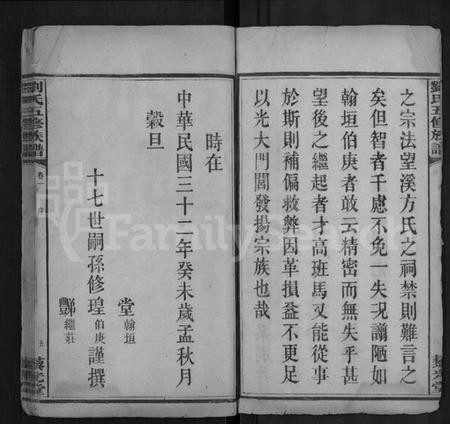 劉氏五修族譜
之宗法望溪方氏之祠禁則難言之
矣但智者千慮不免一失況謭陋如
翰垣伯庚者敢云精密而無失乎甚
望後之繼起者才高班馬又能從事
於斯則補偏救弊因革損益不更足
以光大門閭發揚宗族也哉
時在
中華民國三十二年癸未歲孟秋月
穀旦
堂翰垣
十七世嗣孫修瑝伯庚謹撰
酆繼莊
劉氏五修族譜
卷一
序
五
FamilySearch